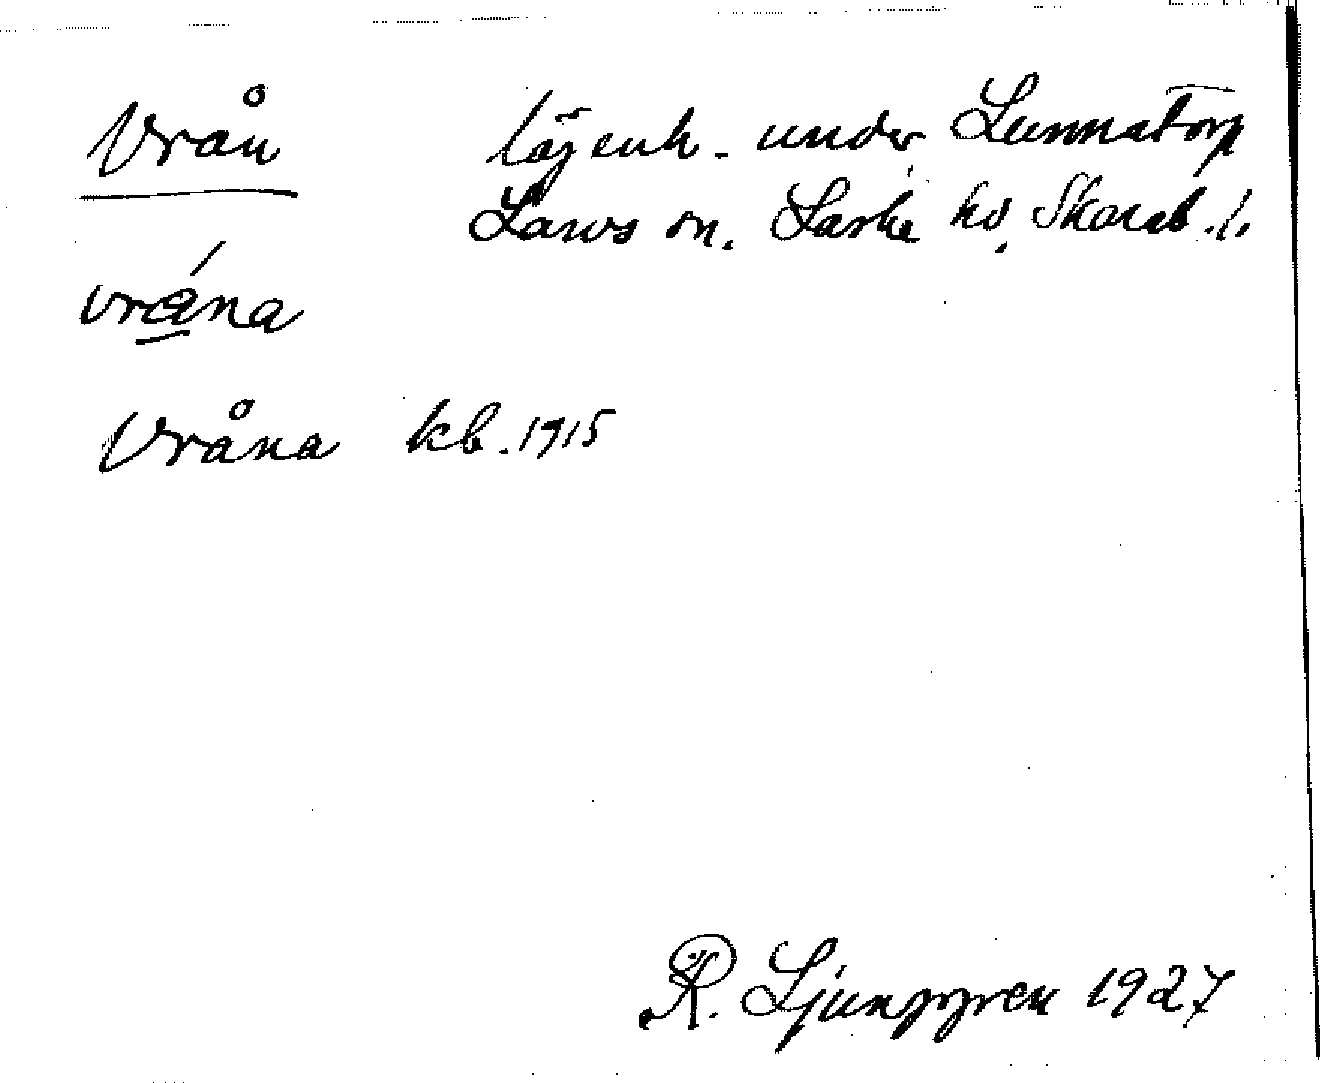 Vrån lägenh. under Lunnatorp
Larvs sn. Laske hd, Skarab. l.
vrána
Vråna kb. 1915
R. Ljunggren 1927